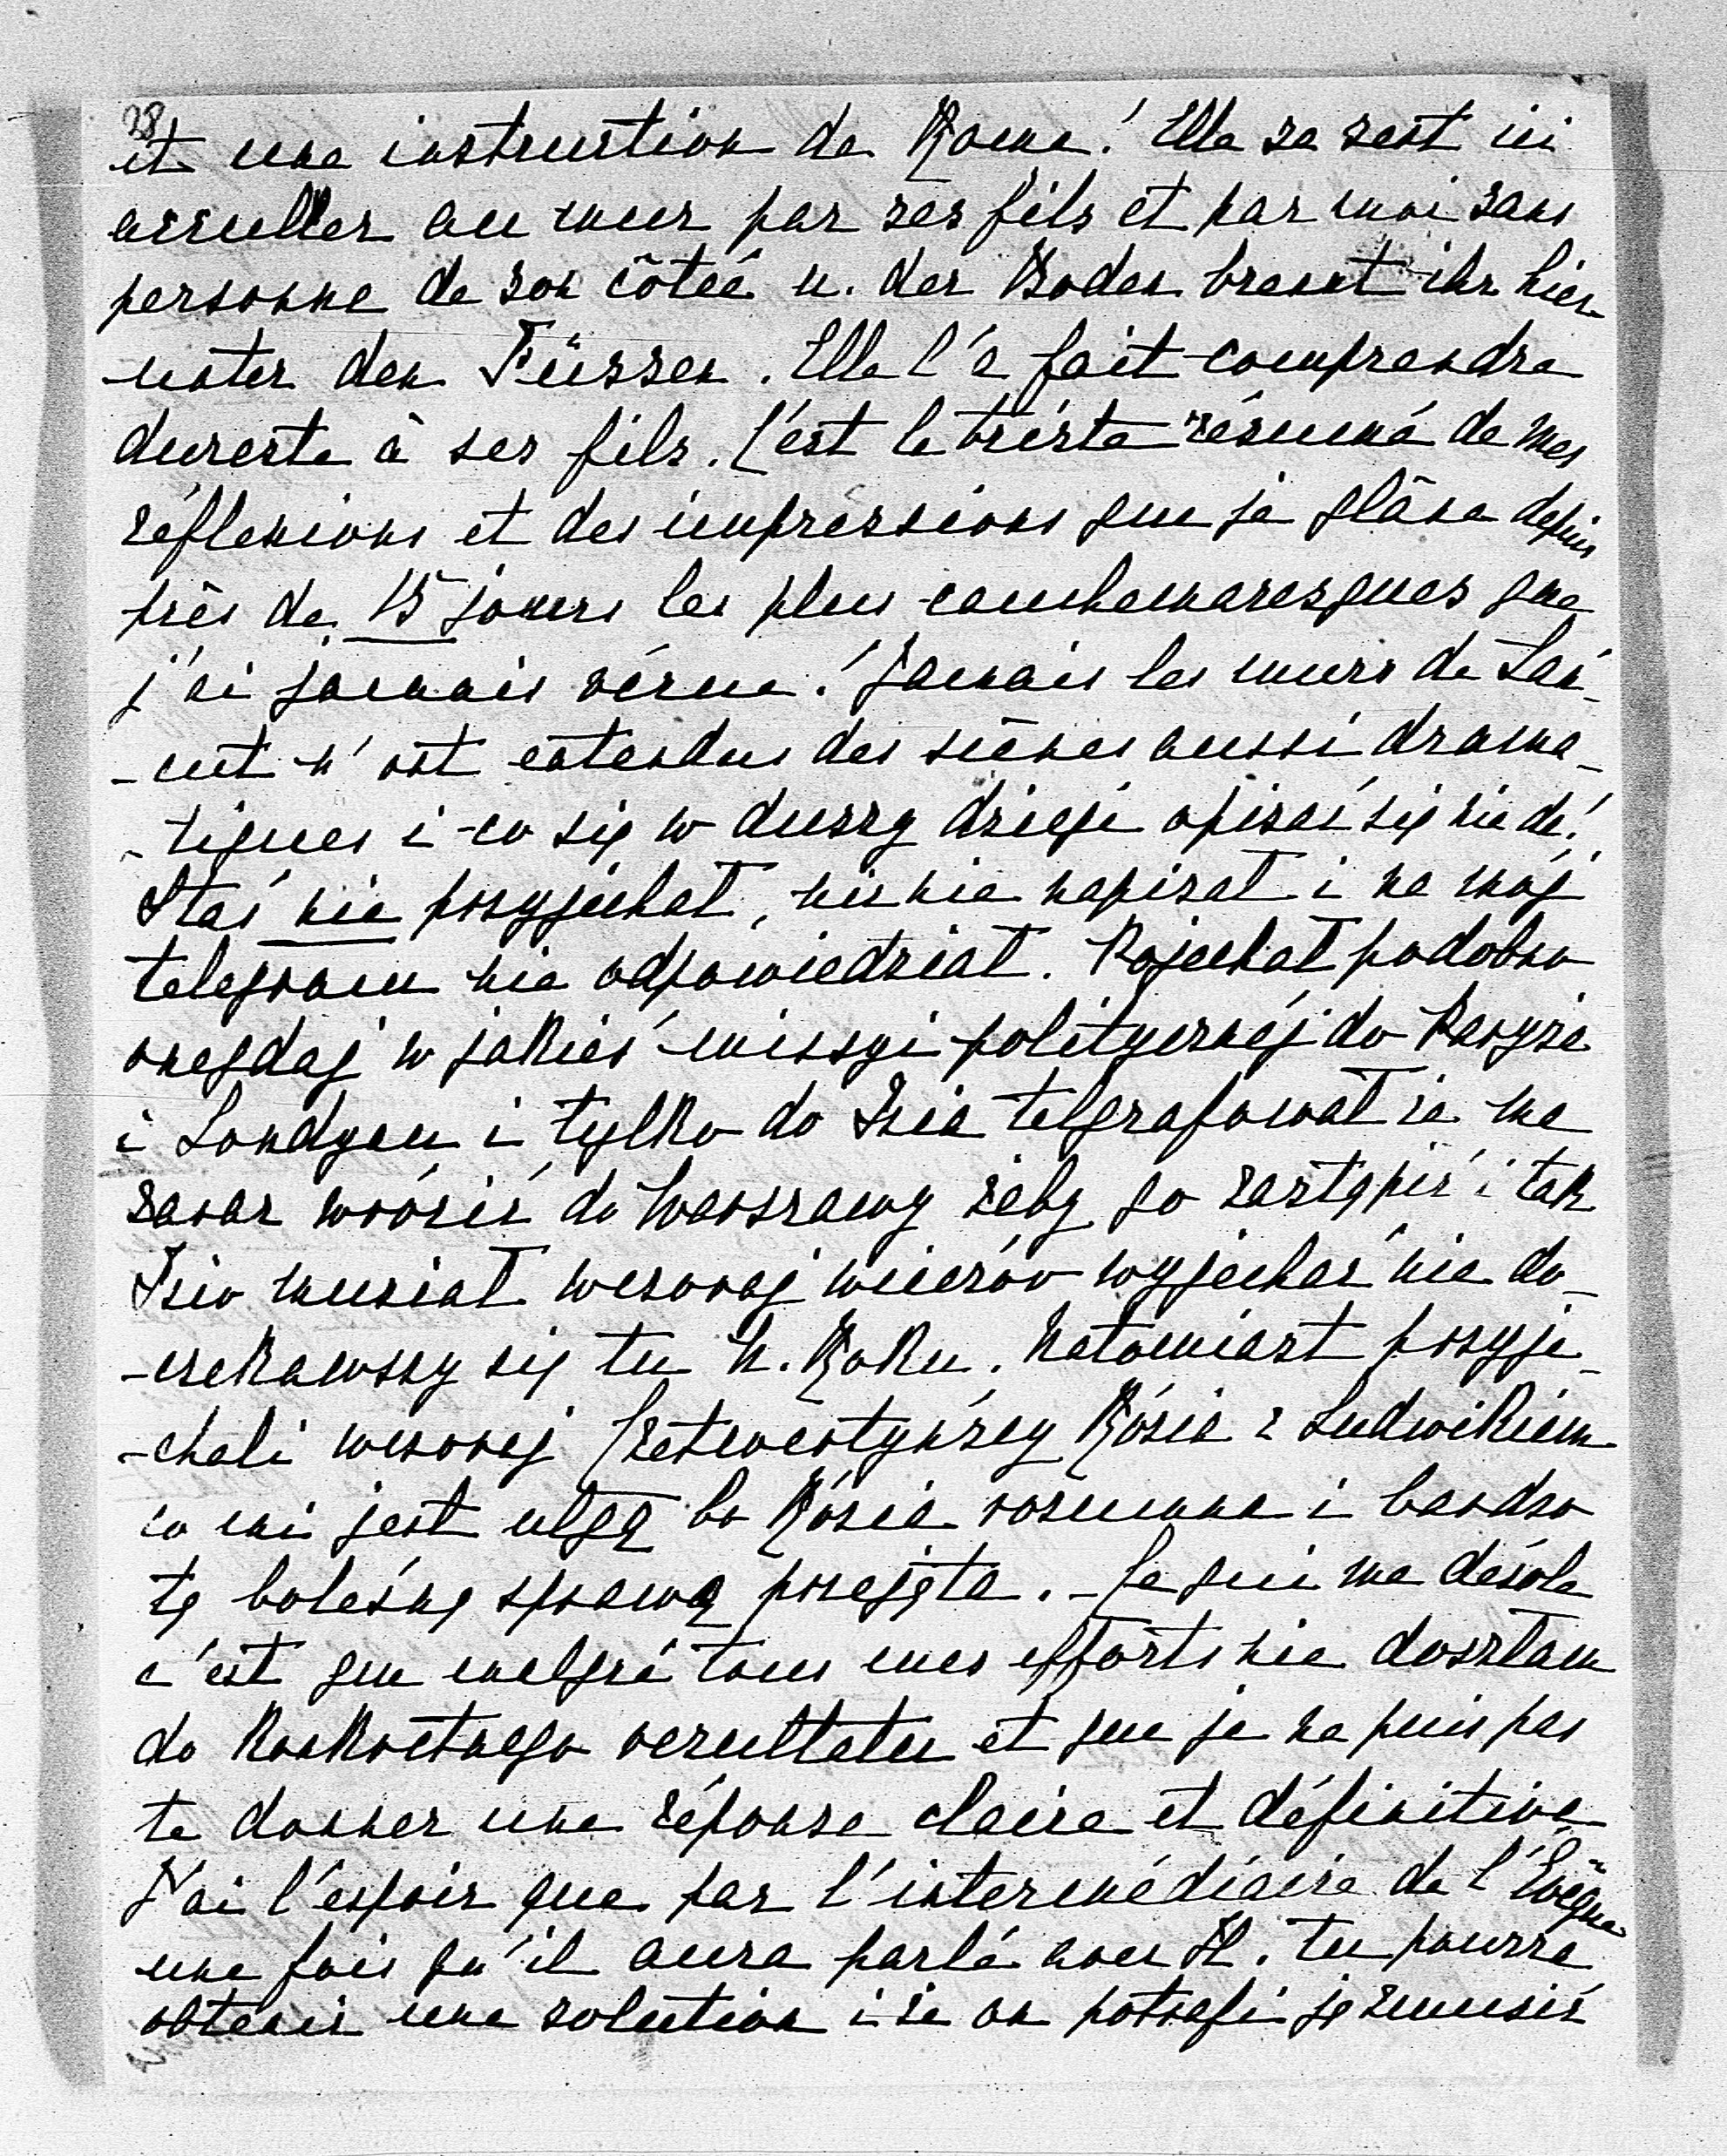 28
et une instruction de Rome! Elle se sent ici
acculler au mur par ses fils et par moi sans
personne de son côteé u. der Boden brennt ihr hier
unter den Füssen. Elle l'a fait comprendre
dureste à ses fils. C'est le triste résumé de mes
réflexions et des impressions que je glâne depuis
près de 15 jours les plus cauchemaresques que
j'ai jamais vécue! Jamais les murs de Łań-
-cut n'ont entendus des scènes aussi drama-
-tiques i co się w duszy dzieje opisać się nie da!
Staś nie przyjechał, nic nie napisał i na mój
telegram nie odpowiedział. Pojechał podobno
onegdaj w jakieś missyi politycznéj do Paryża
i Londynu i tylko do Isia telgrafował że ma
zaraz wrócić do Warszawy żeby go zastąpić i tak
Isio musiał wczoraj wieczór wyjechać nie do-
-czekawszy się tu N. Roku. Natomiast przyje-
-chali wczoraj Czetwertyńscy Rózia z Ludwikiem
co mi jest ulgą bo Rózia rozumna i bardzo
tę boleśnę sprawą przejęta. - Ce qui me désole
c'est que malgré tous mes efforts nie doszłam
do konkretnego rezultatu et que je ne puis pas
te donner une réponse claire et définitive
J'ai l'espoir que par l'intermédiaire de l'Evêque
une fois qu'il aura parlé avec El. tu pourra
obtenir une solution i że on potrafi ję zmusić